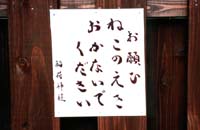 お願ひ
ねこのえさ
おかないで
ください
稲荷神社